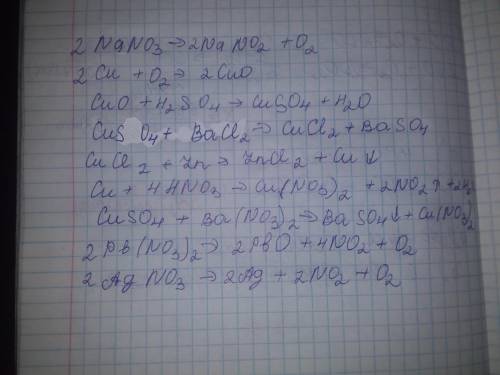 2 NaNO3 → 2NaNO2 + O2
2 Cu + O2 → 2CuO
CuO + H2SO4 → CuSO4 + H2O
CuSO4 + BaCl2 → CuCl2 + BaSO4
CuCl2 + Zn → ZnCl2 + Cu ↓
Cu + 4HNO3 → Cu(NO3)2 + 2NO2↑ + 2H2
CuSO4 + Ba(NO3)2 → BaSO4↓ + Cu(NO3)2
2 Pb(NO3)2 → 2PbO + 4NO2 + O2
2 AgNO3 → 2Ag + 2NO2 + O2